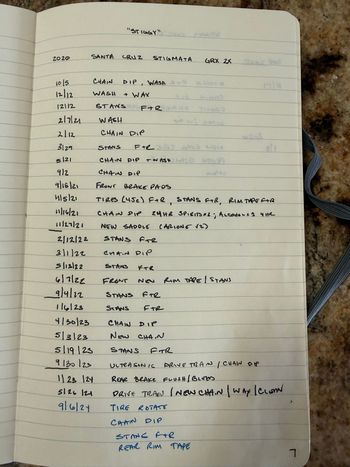 "STIGGY"
2020 SANTA CRUZ STIGMATA GRX 2X
10/5 CHAIN DIP, WASH
12/12 WASH + WAX
12/12 STANS F+R
2/7/21 WASH
2/12 CHAIN DIP
3/29 STANS F+R
5/21 CHAIN DIP + WASH
9/2 CHAIN DIP
9/16/21 FRONT BRAKE PADS
11/5/21 TIRES (45c) F+R, STANS F+R, RIM TAPE F+R
11/16/21 CHAIN DIP 24HR SPIRITS x2, ALCOHOL x2 4HR
11/27/21 NEW SADDLE (ARIONE )
2/12/22 STANS F+R
3/1/22 CHAIN DIP
5/13/22 STANS F+R
6/7/22 FRONT NEW RIM TAPE / STANS
9/4/22 STANS F+R
1/6/23 STANS F+R
4/30/23 CHAIN DIP
5/3/23 NEW CHAIN
5/19/23 STANS F+R
9/30/23 ULTRASONIC DRIVETRAIN / CHAIN DIP
1/23/24 REAR BRAKE FLUSH/BLEED
5/26/24 DRIVE TRAIN / NEW CHAIN / WAX / CLEAN
9/6/24 TIRE ROTATE
CHAIN DIP
STANS F+R
REAR RIM TAPE
7